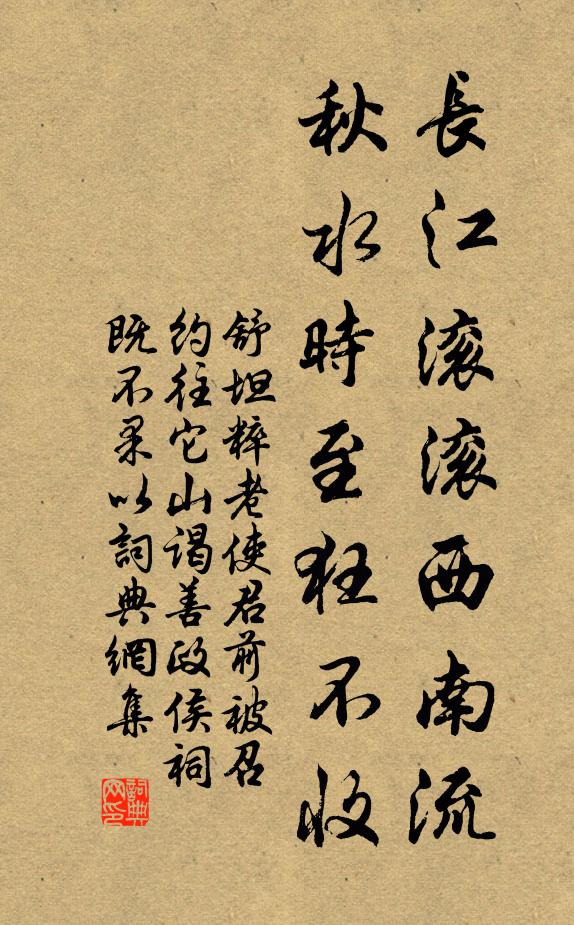 長江滚滚西南流
秋水時至狂不收
舒坦粹老使君前被召
約往它山謁善政侯祠
既不果以詞典網集
詞典网印